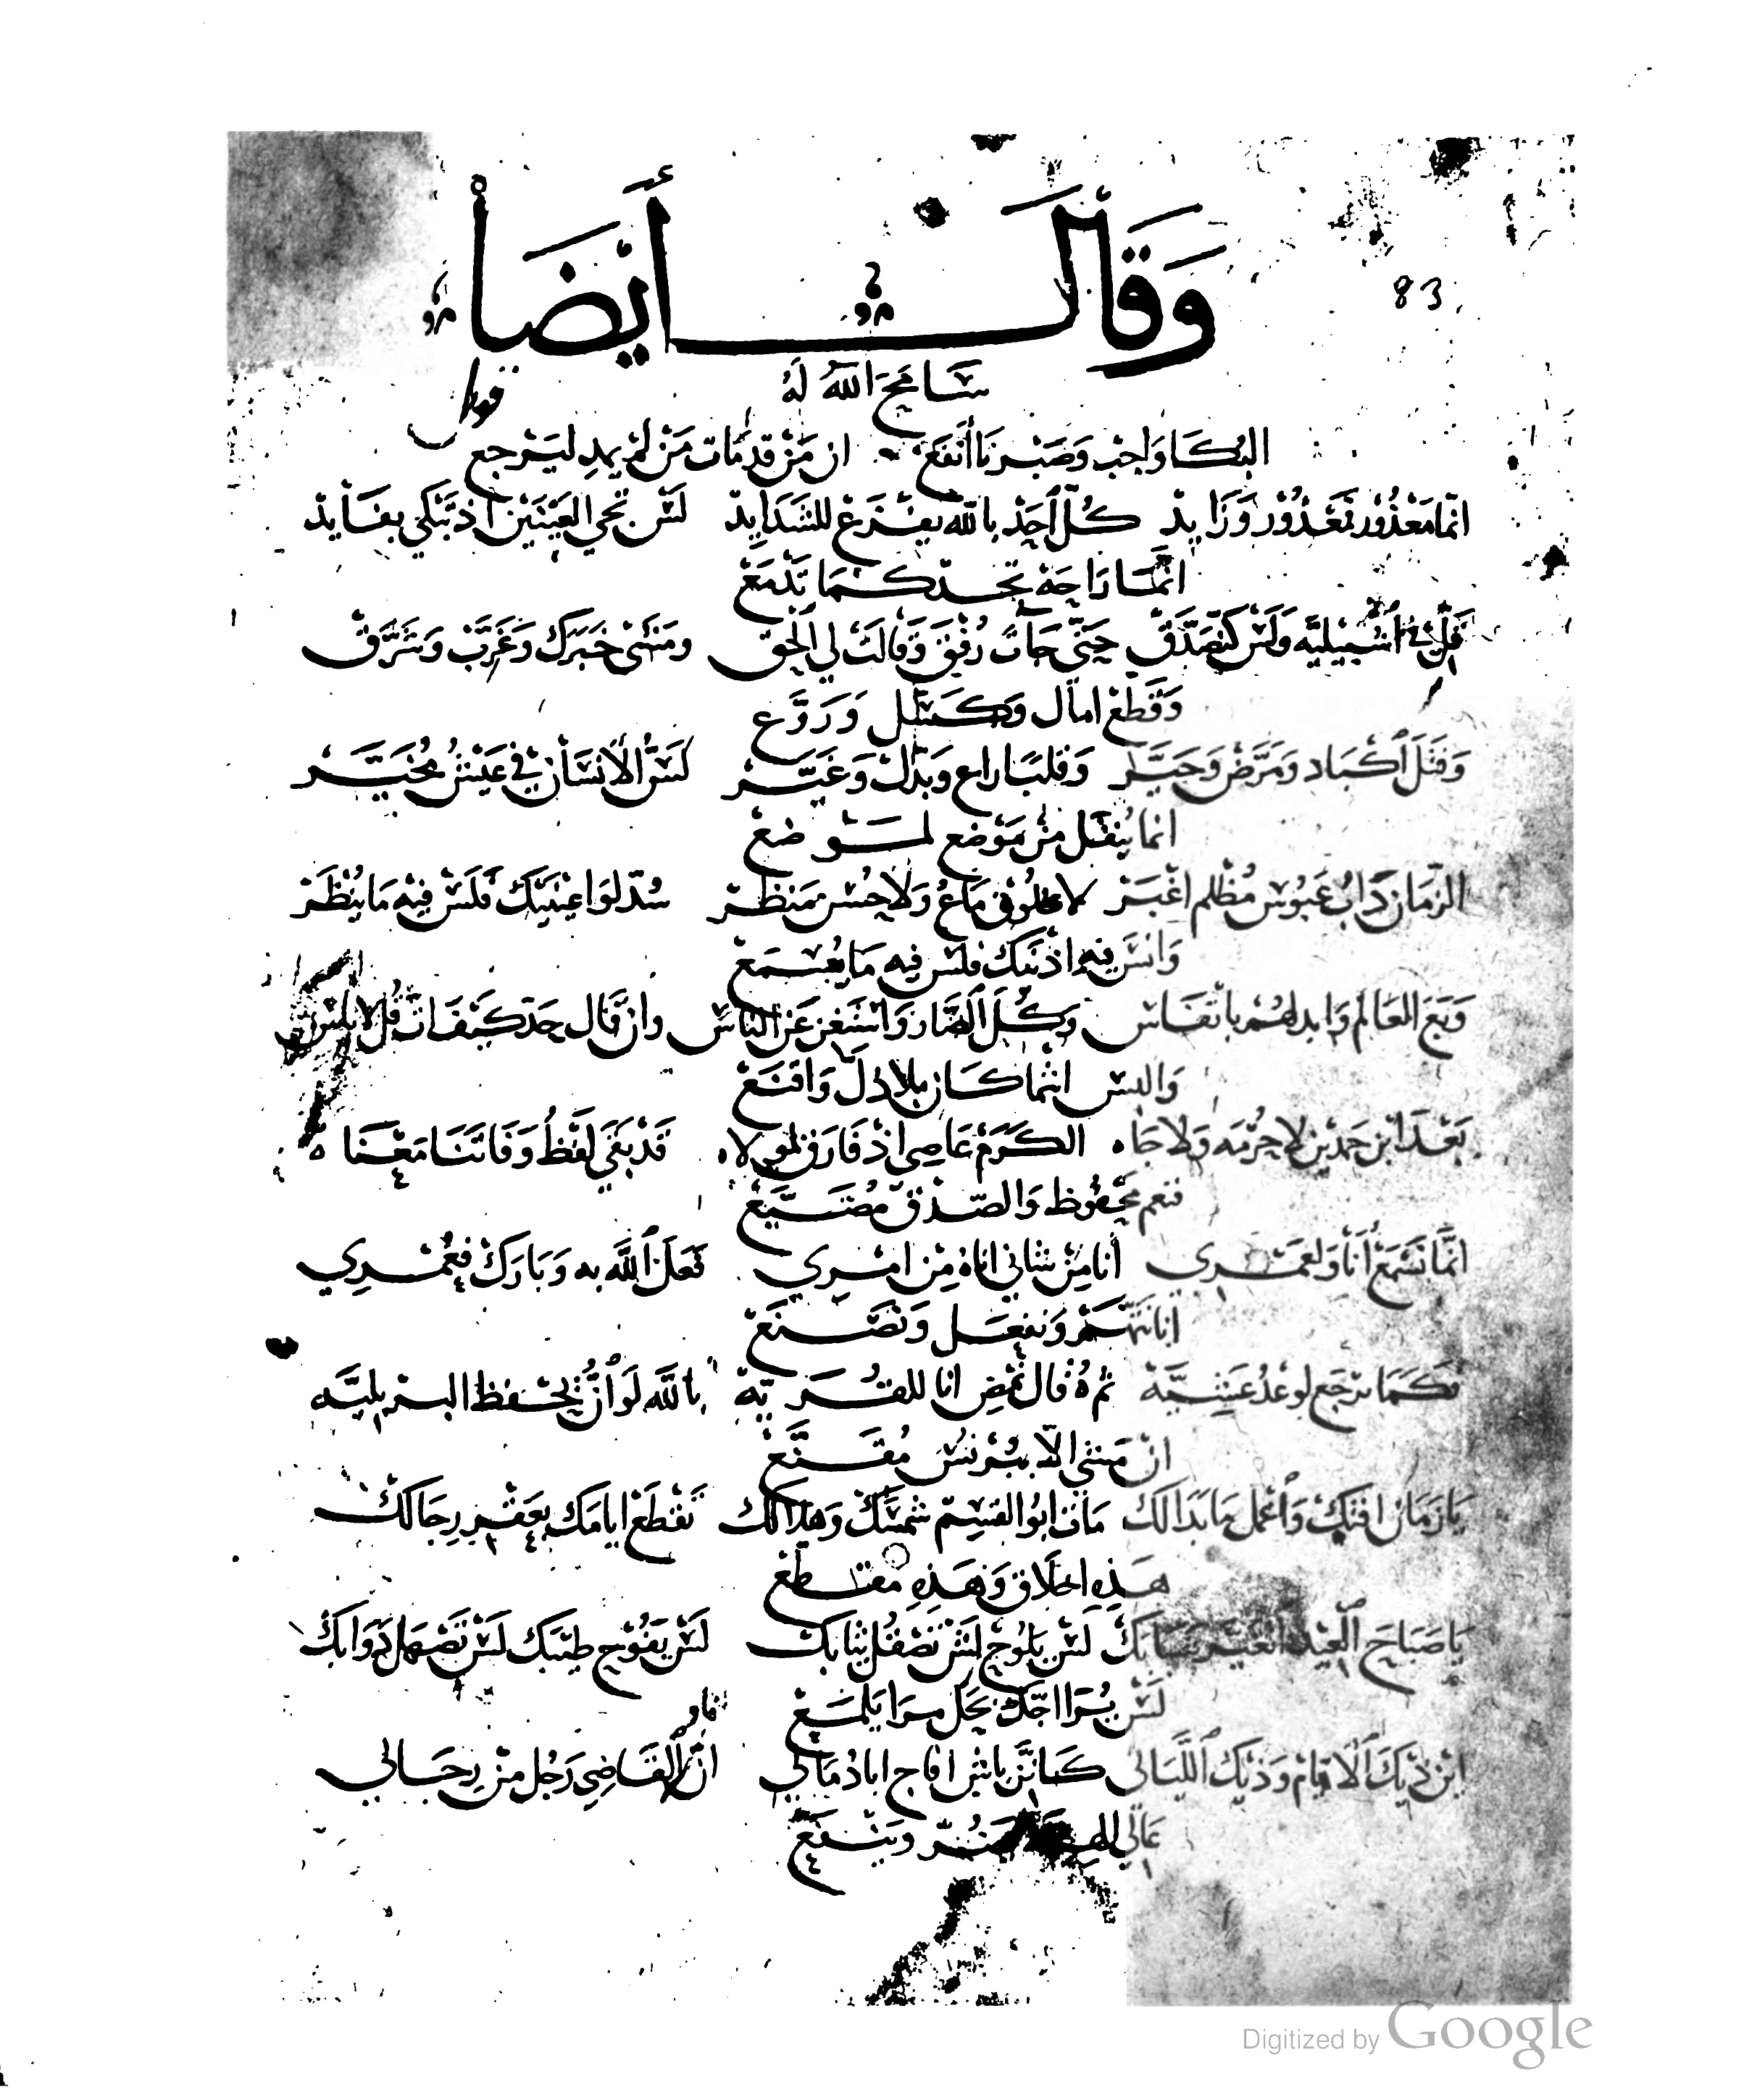 83
وَقَالَ أَيْضَاْ
سَامَحَ اللّهُ لَهُ
البُكَا وَاجِبْ وَصَبْرِنَا أَنفَعْ ان مَنْ قَد مَاتَ مَنْ لَمْ يمدِ ليَسْ رجع
انّمَا مَعْذُوْر نَعْذُوْر وَزَايِدْ كُلّ اَحَدْ بِاللّه يفْزَعْ للشَدَايِدْ لَسْ تحي العَيْنَيْن اذ تَبْكي بفَايدْ
انَّمَا رَاحَهْ تجد كمَا تَدْمَعْ
قِلّ في اشْبيليّه وَلَسْ كنصَدّقْ حَتّى جَات رُفْقَ وَقَالَتْ لي الحَق ومَشَى خَبَرَكْ وَغَرَّبْ وَشَرَّقْ
وَقَطَعْ امال وكَسّل وَرَوَّع
وَقَتَلَ اَكْبَاد ومَرَّضْ وَحَيَّرْ وَقلبًا راع وَبدّلْ وَغَيَّرْ لَسّ الاْنسَانْ في عَيْشُ مُخَيَّرْ
انما يُنقَل مِنْ مَوْضع لمَوْضعْ
الزّمَان دَابْ عَبُوْس مُظْلم اغْبَرْ لا حُلُوْق مَاعُ وَلاَ حُسْن مَنظَرْ سُدّ لوَا عيْنيَك فَلَسْ فيْه مَا يُنظَرْ
وَانسَ فيه اذْنَيك فلس فيه مَا يُسْمَعْ
وَدَع العَالم وَابدلهُم بانْقَاس وَكُلَ الصَّار وَاسْتَغْن عَن النَاسْ وان قَال حَدّ كيْفَ اتّ قُل لا بَاس
وَالبس اشْمَا كَان بلا دلَّ وَاقنَعْ
بَعْدَ ابْن حَمْدِين لا حرْمَه وَلا جَاه الكَرَمْ عَاصِي اذْ فَارَق لموْلاه قَدْ بَقَي لَفْظُ وَفَاتَنَا مَعْنَاهْ
فنعم محْفُوظ وَالصّدْق مُضَيَّعْ
انَّمَا نَسْمَعْ أنَا وَلعَمْري أنَا مِنْ شاني انَاهْ مِن امْرِي فَعَلَ اللَّه به وَبَارَكْ فعُمْرِي
انا نَتْهَمّمْ وَنفعَل وَنَصْنَعْ
فكَمَا نرْجَع لوعْدُ عَشيَّهْ ثمهْ قَال نمْضِ انا للقُرَيّهْ بِاللَّه لَوْ انُّ يحْفظ البَرْبليَّه
انْ مَشى الاّ ببُرْنُسْ مُقَنَّعْ
يَا زَمَان افتِكْ وَاعْمل مَا بَدَا لَك مَات ابُو القسِم شَمْسَكْ وَهلالكْ نقْطَعْ ايامَك بعَقْر رجَالكْ
هَذِهِ اخلاَق وَهَذِهِ مقطعْ
يَا صَبَاحَ الْعِيْد اتْغَيَّر شَبَابَكْ لَسْ يلُوحْ لَسْ تُصْقَل ثيَابَكْ لَسْ يَفُوْح طيْبَك لَسْ تَصْهَل دَوَابكْ
لَسْ يُرَا احَّدْ بحَل مرَا يَلمَعْ
ايْن ذِيْكَ اَلاَيّام وَذيْكَ اَللَّيَالي كَانَّن باشْ افاخ اباذُ مَالي انَّ الْقَاضِي رَجُل مِنْ رِجَالي
وَيَنْفَعْ
Digitized by Google